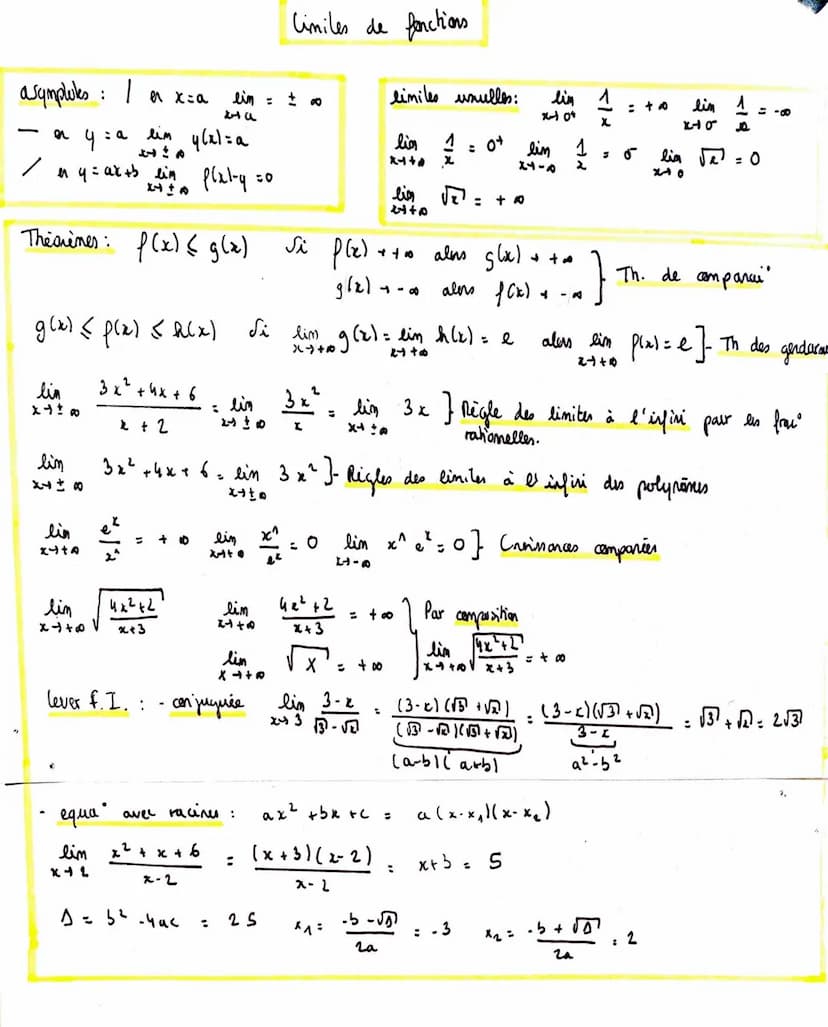 Limites de fonctions
asymptotes : | en x=a lim x→a = ± ∞
— en y = a lim x→±∞ y(x)=a
/ en y=ax+b lim x→±∞ f(x)-y=0
limites usuelles: lim x→0⁺ 1/x = +∞ lim x→0⁻ 1/x = -∞
lim x→+∞ 1/x = 0⁺ lim x→-∞ 1/x = 0⁻ lim x→0 √x = 0
lim x→+∞ √x = +∞
Théorèmes : f(x) ≤ g(x) Si f(x) → +∞ alors g(x) → +∞
g(x) → -∞ alors f(x) → -∞ } Th. de comparai°
g(x) ≤ f(x) ≤ h(x) Si lim x→+∞ g(x) = lim x→+∞ h(x) = l alors lim x→+∞ f(x) = l ]- Th des gendarm
lim x→±∞ (3x²+4x+6)/(x+2) = lim x→±∞ 3x²/x = lim x→±∞ 3x } Règle des limites à l'infini pour les frac°
rationnelles.
lim x→±∞ 3x²+4x+6 = lim x→±∞ 3x² ]- Règles des limites à l'infini des polynômes
lim x→+∞ eˣ/xⁿ = +∞ lim x→+∞ xⁿ/eˣ = 0 lim x→-∞ xⁿ eˣ = 0 } Croissances comparées
lim x→+∞ √((4x²+2)/(x+3)) lim x→+∞ (4x²+2)/(x+3) = +∞ } Par composition
lim X→+∞ √X = +∞ lim x→+∞ √((4x²+2)/(x+3)) = +∞
Lever f.I. : - conjuguée lim x→3 (3-x)/(√3-√x) = (3-x)(√3+√x)/((√3-√x)(√3+√x)) = (3-x)(√3+√x)/(3-x) = √3+√x = 2√3
(a-b)(a+b) a²-b²
- equa° avec racines : ax²+bx+c = a(x-x₁)(x-x₂)
lim x→2 (x²+x+6)/(x-2) = (x+3)(x-2)/(x-2) = x+3 = 5
Δ = b²-4ac = 25 x₁ = (-b-√Δ)/2a = -3 x₂ = (-b+√Δ)/2a = 2